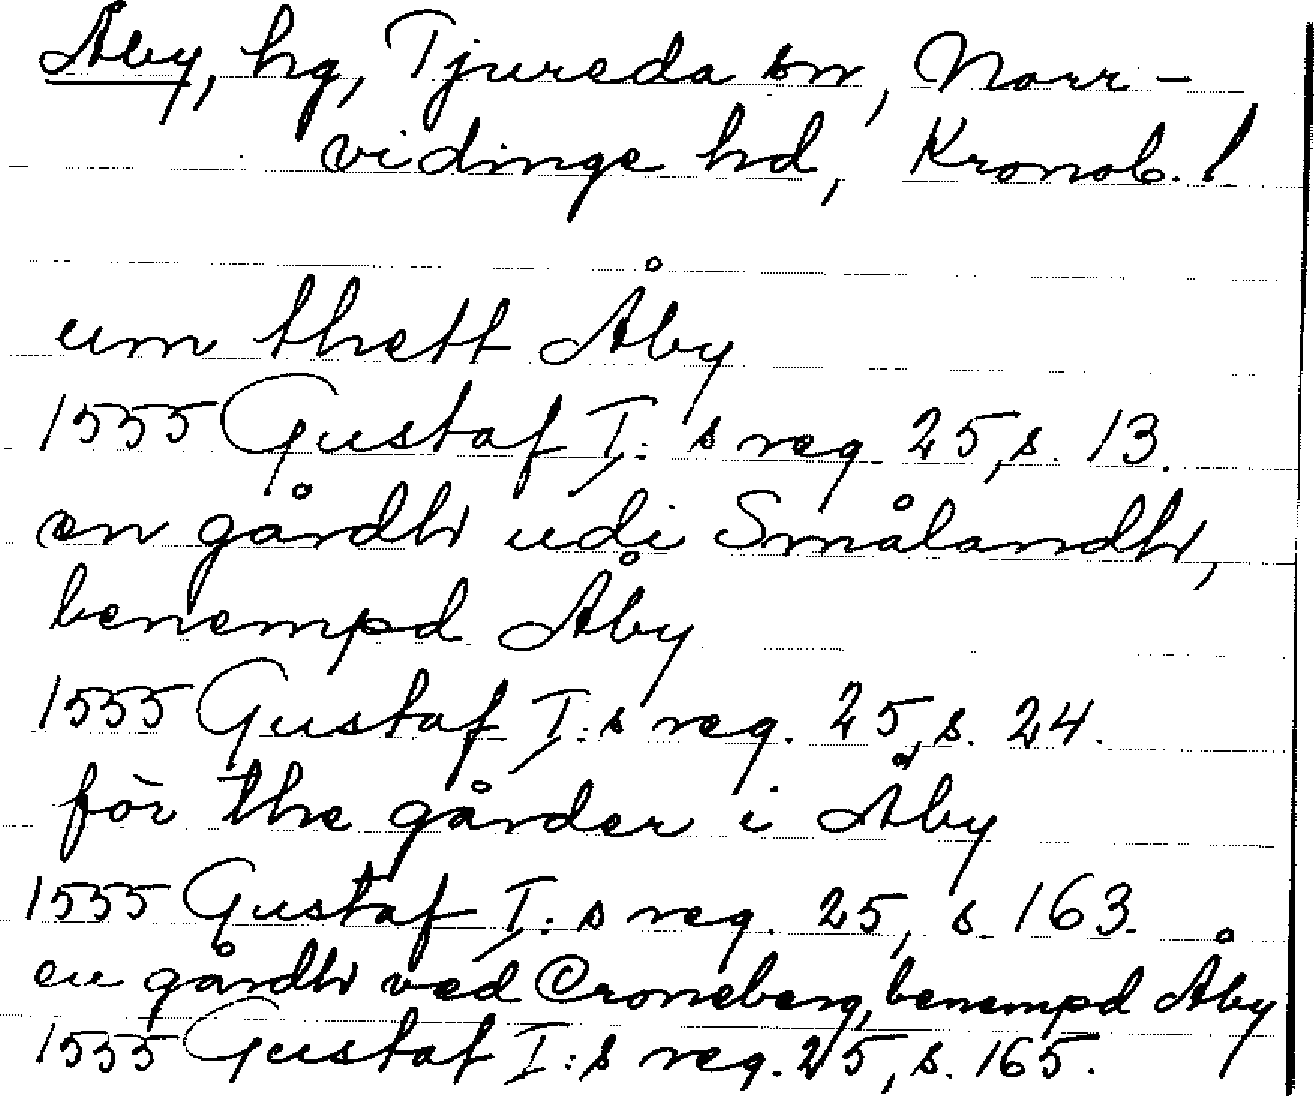 Åby, hg, Tjureda sn, Norr-
vidinge hd, Kronob. l
um thett Åby
1555 Gustaf I:s reg 25, s. 13.
en gårdh udi Smålandh,
benempd Åby
1555 Gustaf I:s reg. 25, s. 24.
för the gårder i Åby
1555 Gustaf I:s reg. 25, s. 163.
en gårdh ved Croneberg, benempd Åby
1555 Gustaf I:s reg. 25, s. 165.